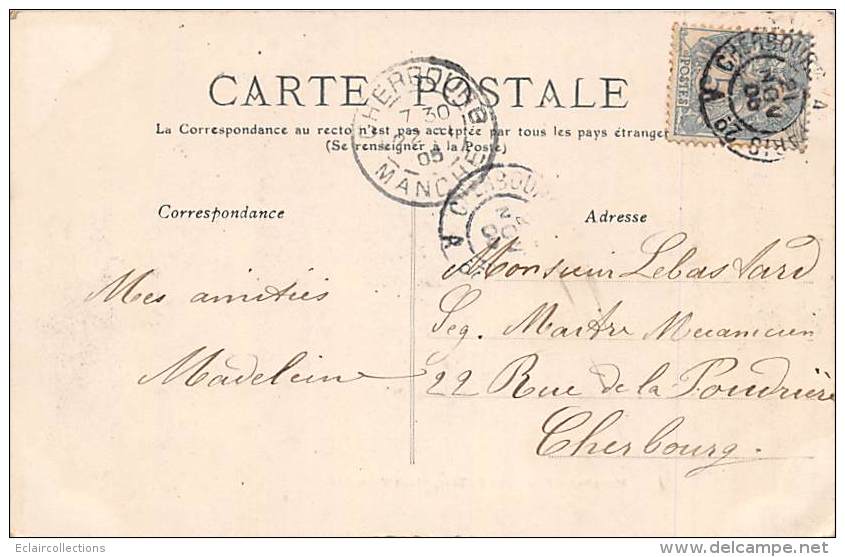 CARTE POSTALE
La Correspondance au recto n'est pas acceptée par tous les pays étranger
(Se renseigner à la Poste)
CHERBOURG
7 30
05
MANCHE
CHERBOURG A PARIS
21
NOV
05
POSTES
Correspondance
Adresse
Mes amitiés
Madeleine
Monsieur Lebastard
Seg. Maitre Mecanicien
22 Rue de la Poudrière
Cherbourg.
Eclaircollections
www.delcampe.net